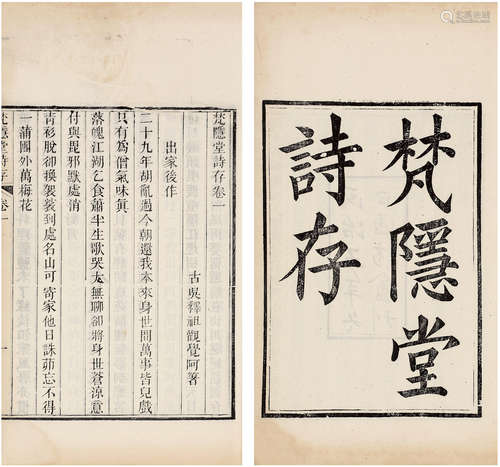 梵隱堂
詩存
梵隱堂詩存卷一
古吳釋祖觀覺阿著
出家後作
二十九年胡亂過今朝還我本來身世間萬事皆兒戲
只有為僧氣味眞
落魄江湖乞食簫半生歌哭太無聊卻將身世蒼涼意
付與毘邪默處消
青衫脫卻換袈裟到處名山可寄家他日誅茆忘不得
一蒲團外萬梅花
梵隱堂詩存 卷一
一